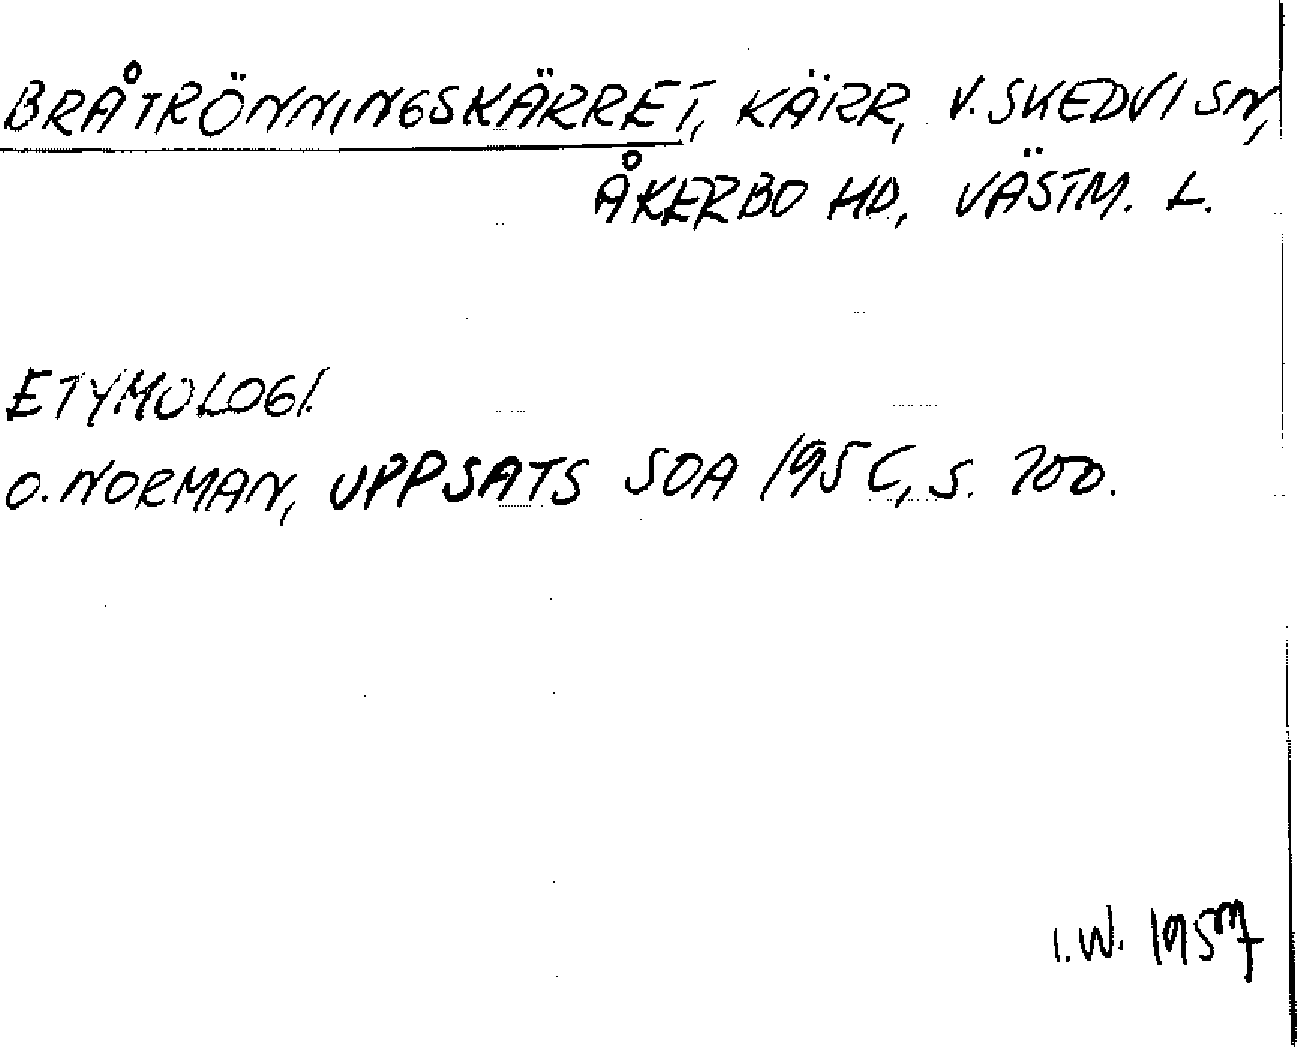 BRÅTRÖNNINGSKÄRRET, KÄRR, V. SKEDVI SN,
ÅKERBO HD, VÄSTM. L.
ETYMOLOGI.
O. NORMAN, UPPSATS SOA 1956, S. 200.
I.W. 1957